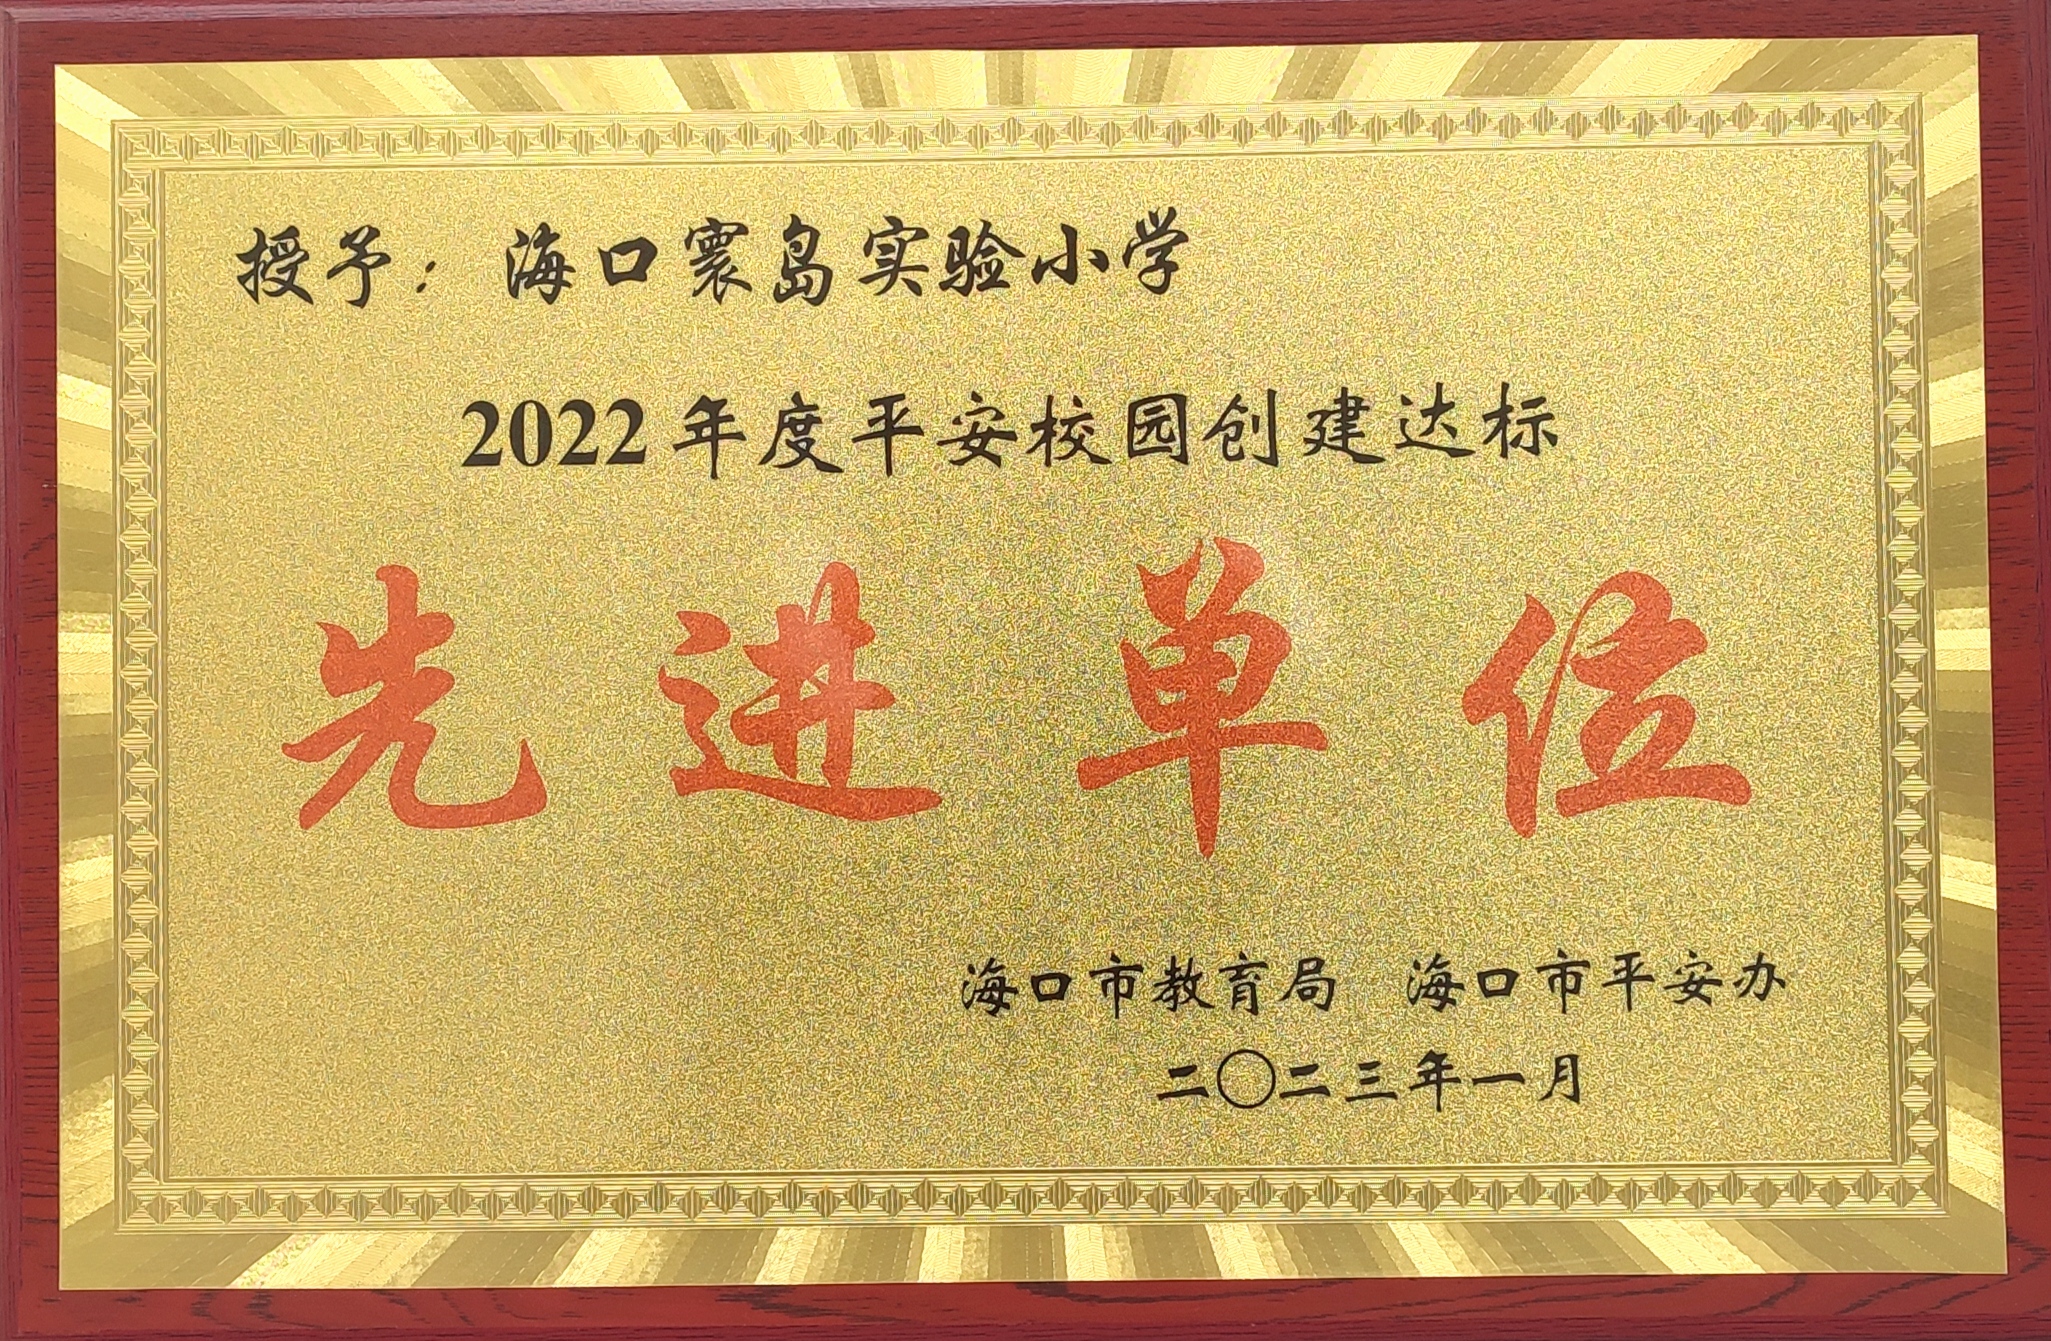 授予：海口寰岛实验小学
2022年度平安校园创建达标
先进单位
海口市教育局 海口市平安办
二〇二三年一月